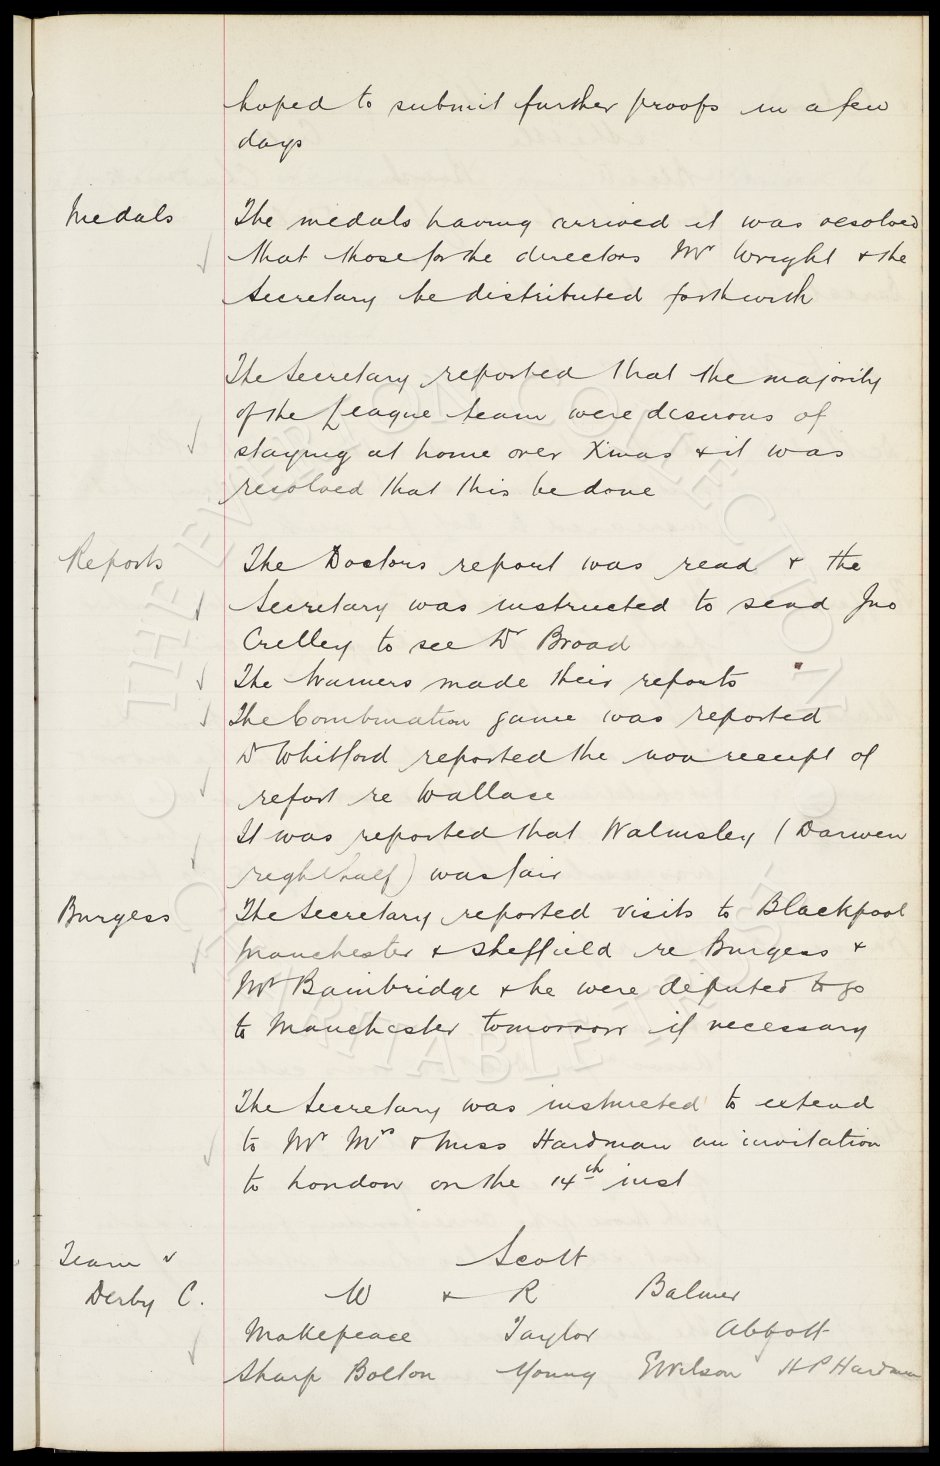 hoped to submit further proofs in a few
days
Medals
The medals having arrived it was resolved
that those for the directors Mr Wright & the
Secretary be distributed forthwith
The Secretary reported that the majority
of the League team were desirous of
staying at home over Xmas & it was
resolved that this be done
Reports
The Doctors report was read & the
Secretary was instructed to send Jno
Crelley to see Dr Broad
The trainers made their reports
The Combination game was reported
Dr Whitford reported the non receipt of
report re Wallace
It was reported that Walmsley (Darwen
right half) was fair
Burgess
The Secretary reported visits to Blackpool
Manchester & Sheffield re Burgess &
Mr Bainbridge & he were deputed to go
to Manchester tomorrow if necessary
The Secretary was instructed to extend
to Mr Mrs & Miss Hardman an invitation
to London on the 14th inst
Team v
Derby C.
Scott
W & R Balmer
Makepeace Taylor Abbott
Sharp Bolton Young G Wilson H P Hardman
THE EVERTON COLLECTION
CHARITABLE TRUST